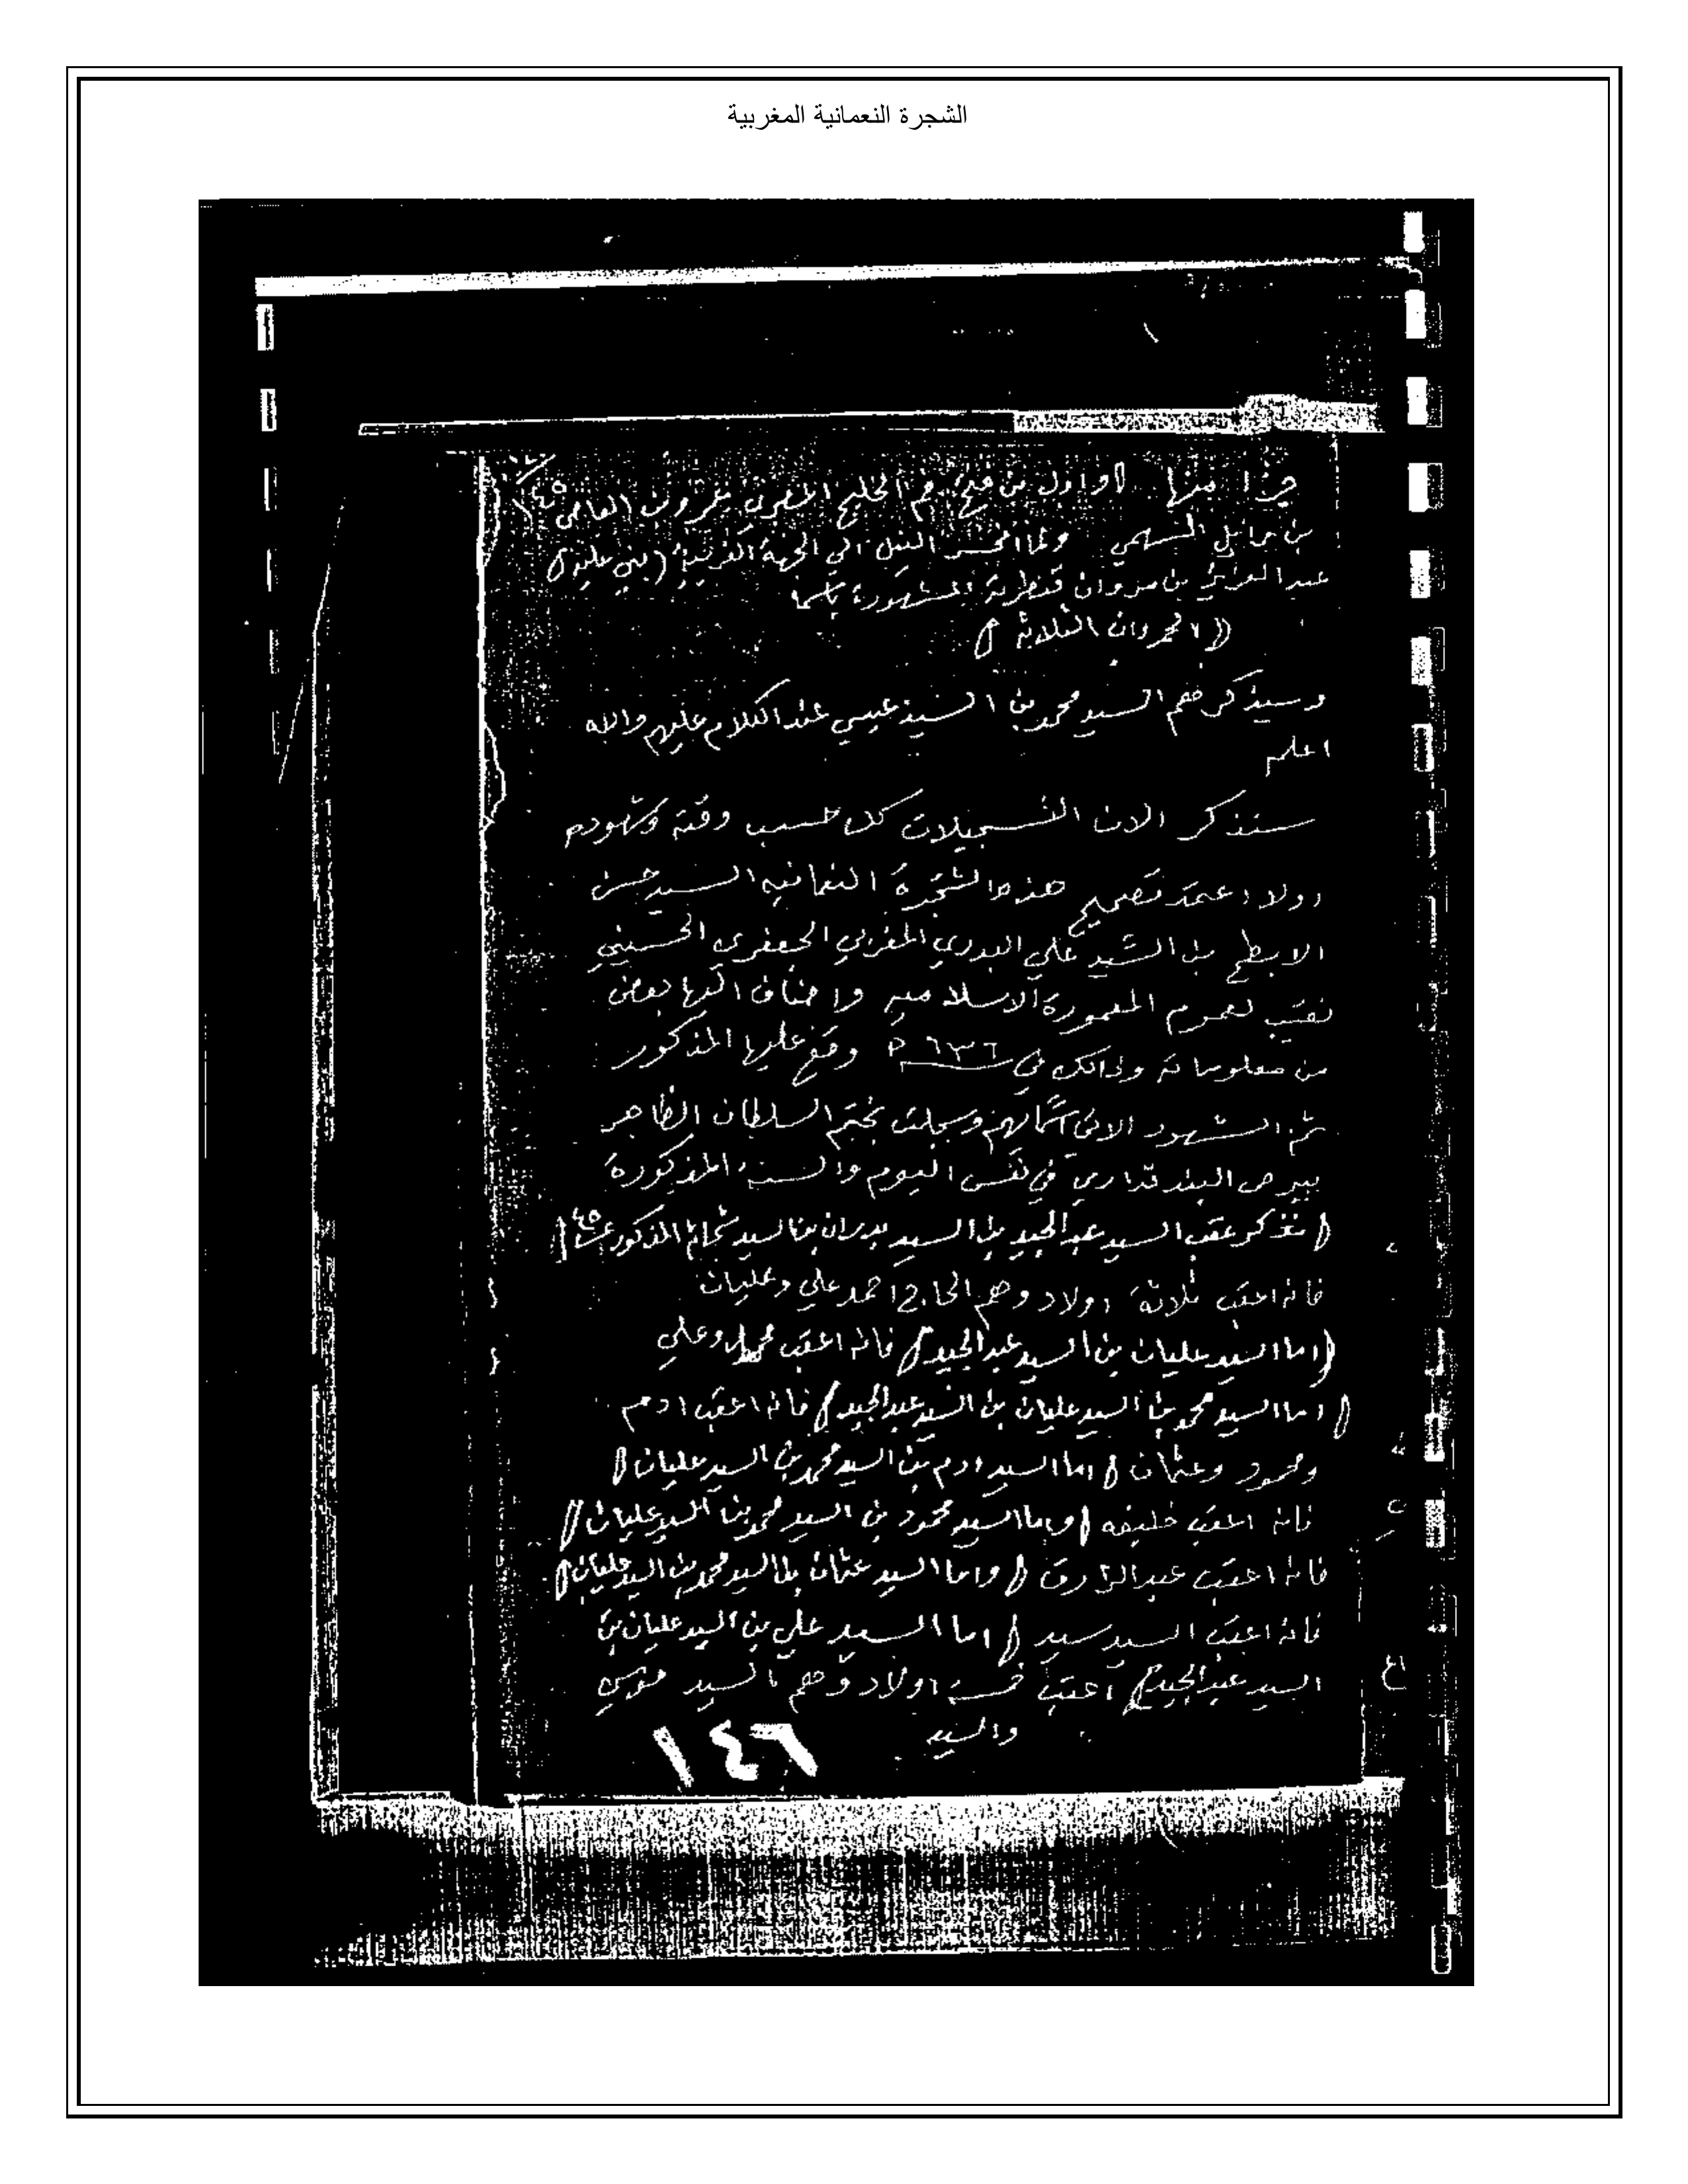 الشجرة النعمانية المغربية
جزأ منها واول من فتح فم الخليج المصري عمرو بن العاص
بن وائل السهمي ولما انحسر النيل الي الجهة الغربية (بني عليه)
عبد العزيز بن مروان قنطرة المشهورة باسم
وسيذكرهم السيد محمد بن السيد عيسي عند الكلام عليهم والله
اعلم
سنذكر الان التسجيلات كل حسب وقته وشهوده
اولا اعتمد تصحيح هذه الشجرة النعانيه السيد حسن
الابطح بن السيد علي البدري المغربي الجعفري الحسيني
نقيب لعموم المعمورة الاسلاميه واضاف اليها بعض
من معلوماته وذالك في ٦٣٦ ووقع عليها المذكور
ثم الشهود الاتي اسمائهم وسجلت بختم السلطان الظاهر
بيبرص البندقداري في نفس اليوم والسنه المذكورة
(نذكر عقب السيد عبد المجيد بن السيد بدران بن السيد المذكور
فانه اعقب ثلاثة اولاد وهم الحاج احمد علي وعليان
(اما السيد عليان بن السيد عبد المجيد) فانه اعقب محمد وعلي
(اما السيد محمد بن السيد عليان بن السيد عبد المجيد) فانه اعقب ادم
ومحمود وعثمان (اما السيد ادم بن السيد محمد بن السيد عليان)
فانه اعقب خليفه (واما السيد محمود بن السيد محمد بن السيد عليان)
فانه اعقب عبد الرازق (واما السيد عثمان بن السيد محمد بن السيد عليان)
فانه اعقب السيد سيد (اما السيد علي بن السيد عليان بن
السيد عبد المجيد) اعقب خمسة اولاد وهم السيد موسي
والسيد
١٤٦